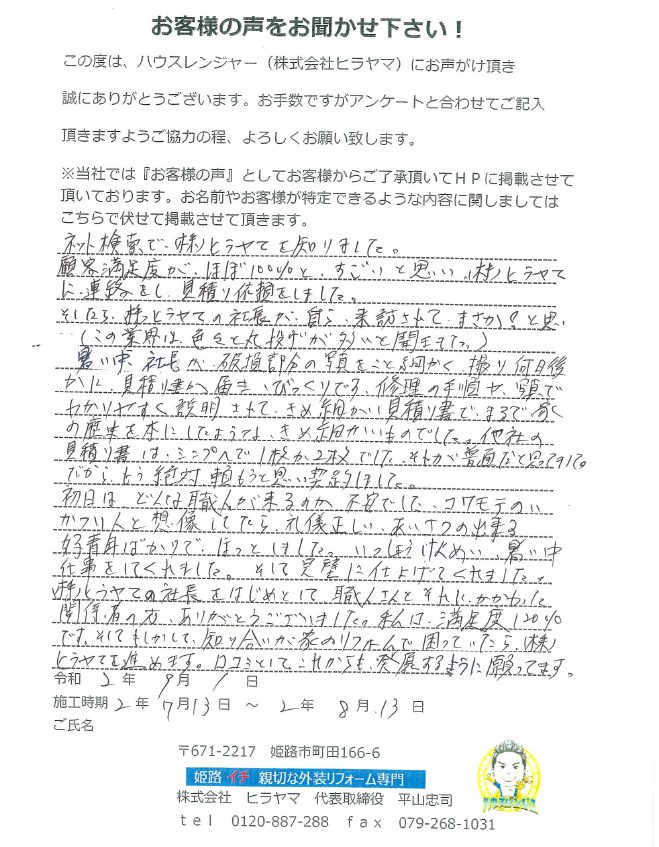 お客様の声をお聞かせ下さい！
この度は、ハウスレンジャー（株式会社ヒラヤマ）にお声がけ頂き
誠にありがとうございます。お手数ですがアンケートと合わせてご記入
頂きますようご協力の程、よろしくお願い致します。
※当社では『お客様の声』としてお客様からご了承頂いてＨＰに掲載させて
頂いております。お名前やお客様が特定できるような内容に関しましては
こちらで伏せて掲載させて頂きます。
ネット検索で、(株)ヒラヤマを知りました。
顧客満足度が、ほぼ100%と、すごいと思い、(株)ヒラヤマ
に連絡をし、見積り依頼をしました。
そしたら、(株)ヒラヤマの社長が、自ら、来訪されて、まさか?と思い
(この業界は、色々と丸投げが多いと聞いてた。)
暑い中、社長が、破損部分の写真をこと細かく、撮り何日後
かに、見積り書が届き、びっくりです。修理の手順や、写真で
わかりやすく説明されて、きめ細かい見積り書で、まるで家
の歴史を本にしたような、きめ細かいものでした。他社の
見積り書は、シンプルで1枚か2枚でした、それが普通だと思ってました。
だから、もう絶対頼もうと思い契約しました。
初日は、どんな職人が来るのか、不安でした、コワモテのい
かつい人と想像してたら、礼儀正しい、あいさつの出来る
好青年ばかりで、ほっとしました。いっしょうけんめい、暑い中
仕事をしてくれました。そして完璧に仕上げてくれました。
(株)ヒラヤマの社長をはじめとして、職人さんとそれに、かかわった
関係者の方、ありがとうございました。私は、満足度120%
です。そしてもしかして、知り合いが家のリフォームで困っていたら、(株)
ヒラヤマを進めます。口コミとして、これからも、発展するように願ってます。
令和 2 年 9 月 1 日
施工時期 2 年 7 月 13 日 ～ 2 年 8 月 13 日
ご氏名
〒671-2217 姫路市町田166-6
姫路 イチ 親切な外装リフォーム専門
株式会社 ヒラヤマ 代表取締役 平山忠司
ｔｅｌ 0120-887-288 ｆａｘ 079-268-1031